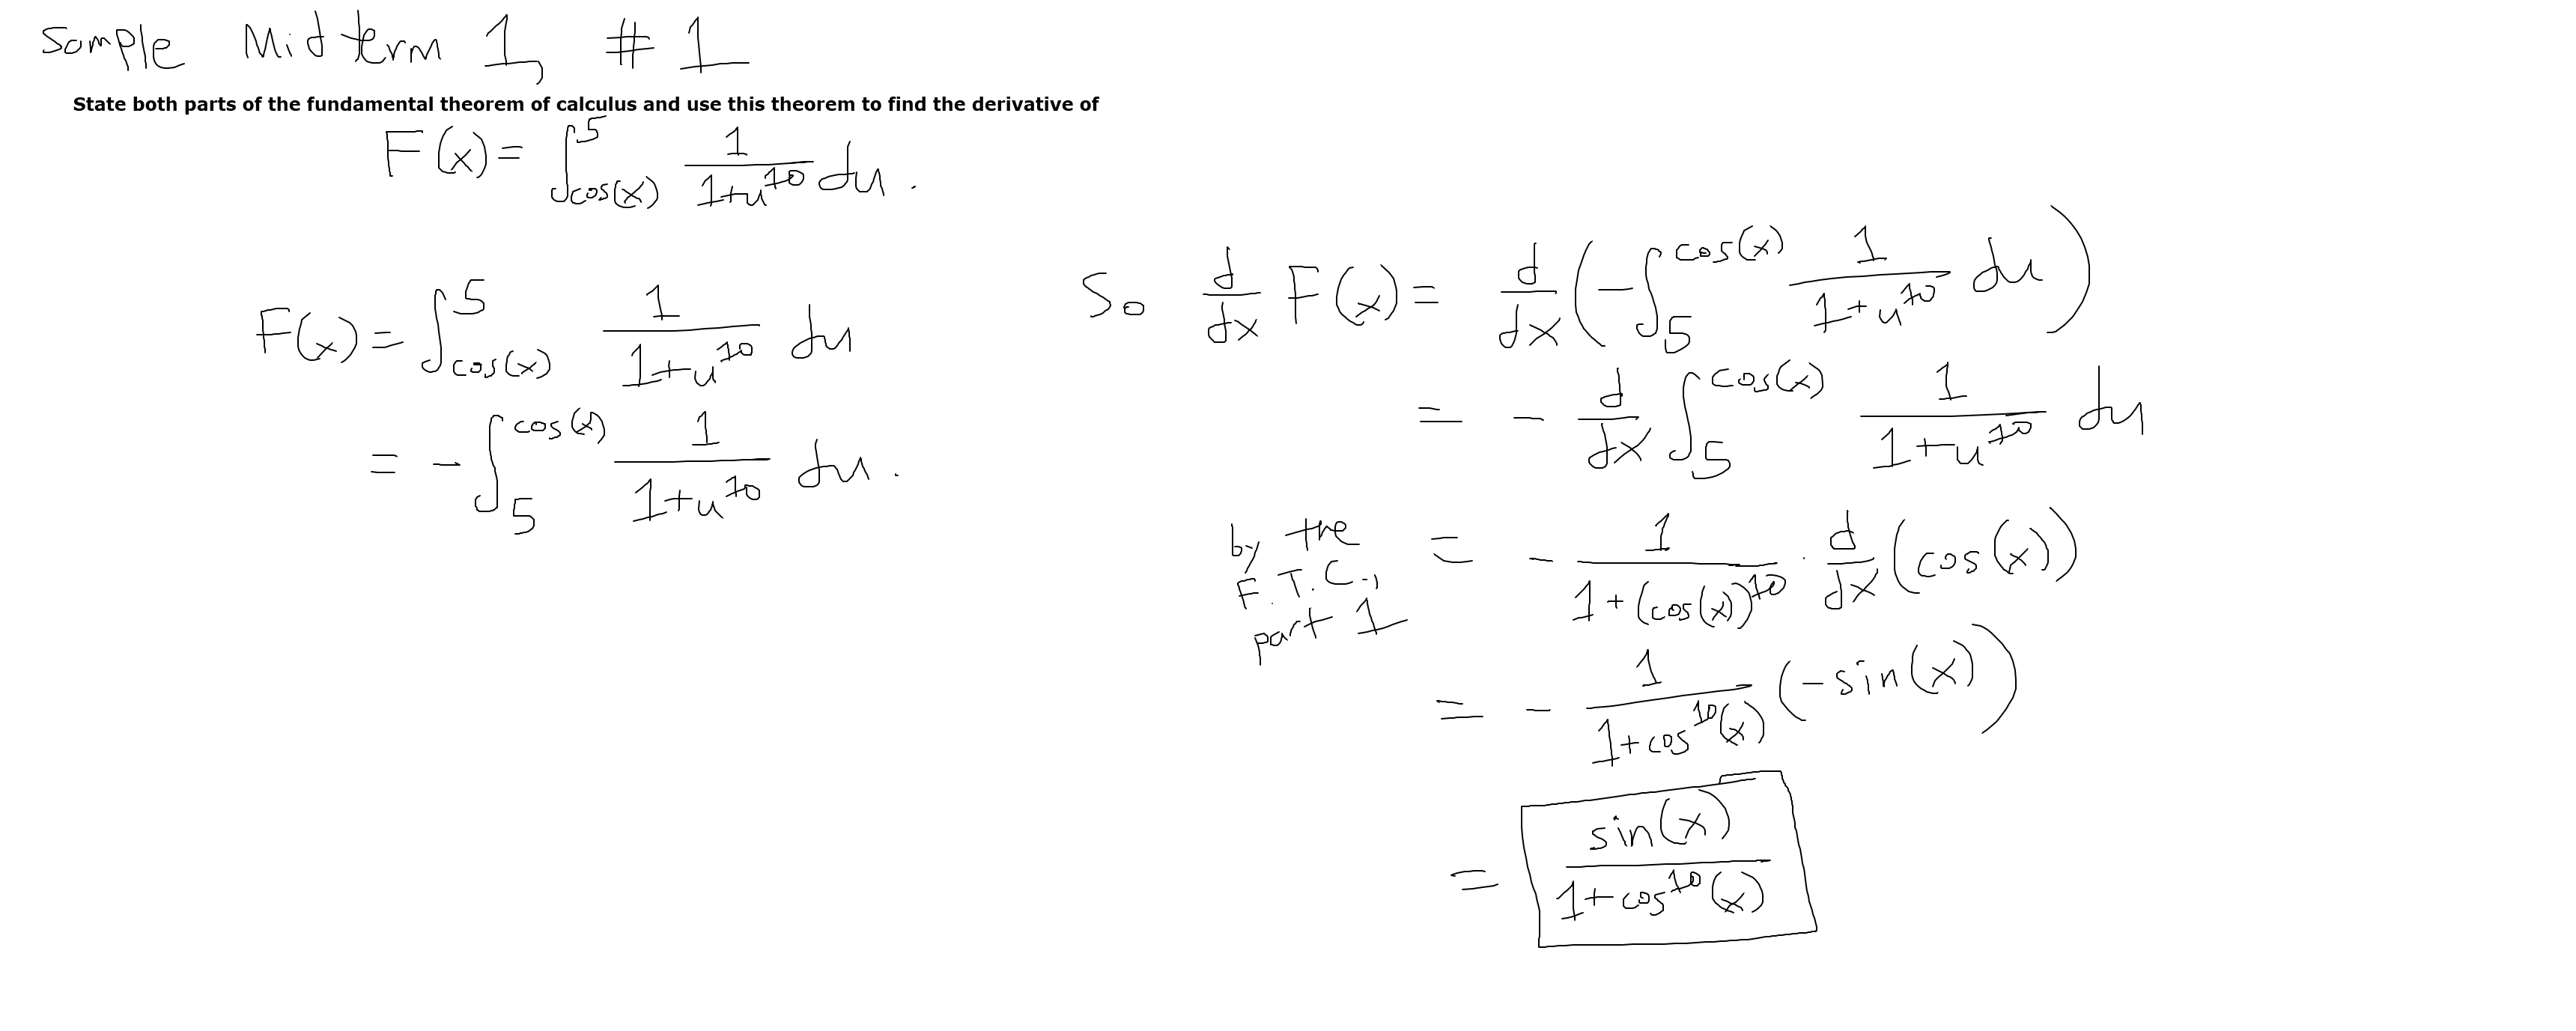 Sample Midterm 1, #1
State both parts of the fundamental theorem of calculus and use this theorem to find the derivative of
F(x) = ∫_{cos(x)}^{5} 1/(1+u^10) du.
F(x) = ∫_{cos(x)}^{5} 1/(1+u^10) du
= -∫_{5}^{cos(x)} 1/(1+u^10) du.
So d/dx F(x) = d/dx (-∫_{5}^{cos(x)} 1/(1+u^10) du)
= - d/dx ∫_{5}^{cos(x)} 1/(1+u^10) du
by the F.T.C., part 1 = - 1/(1+(cos(x))^10) · d/dx (cos(x))
= - 1/(1+cos^10(x)) (-sin(x))
= sin(x)/(1+cos^10(x))